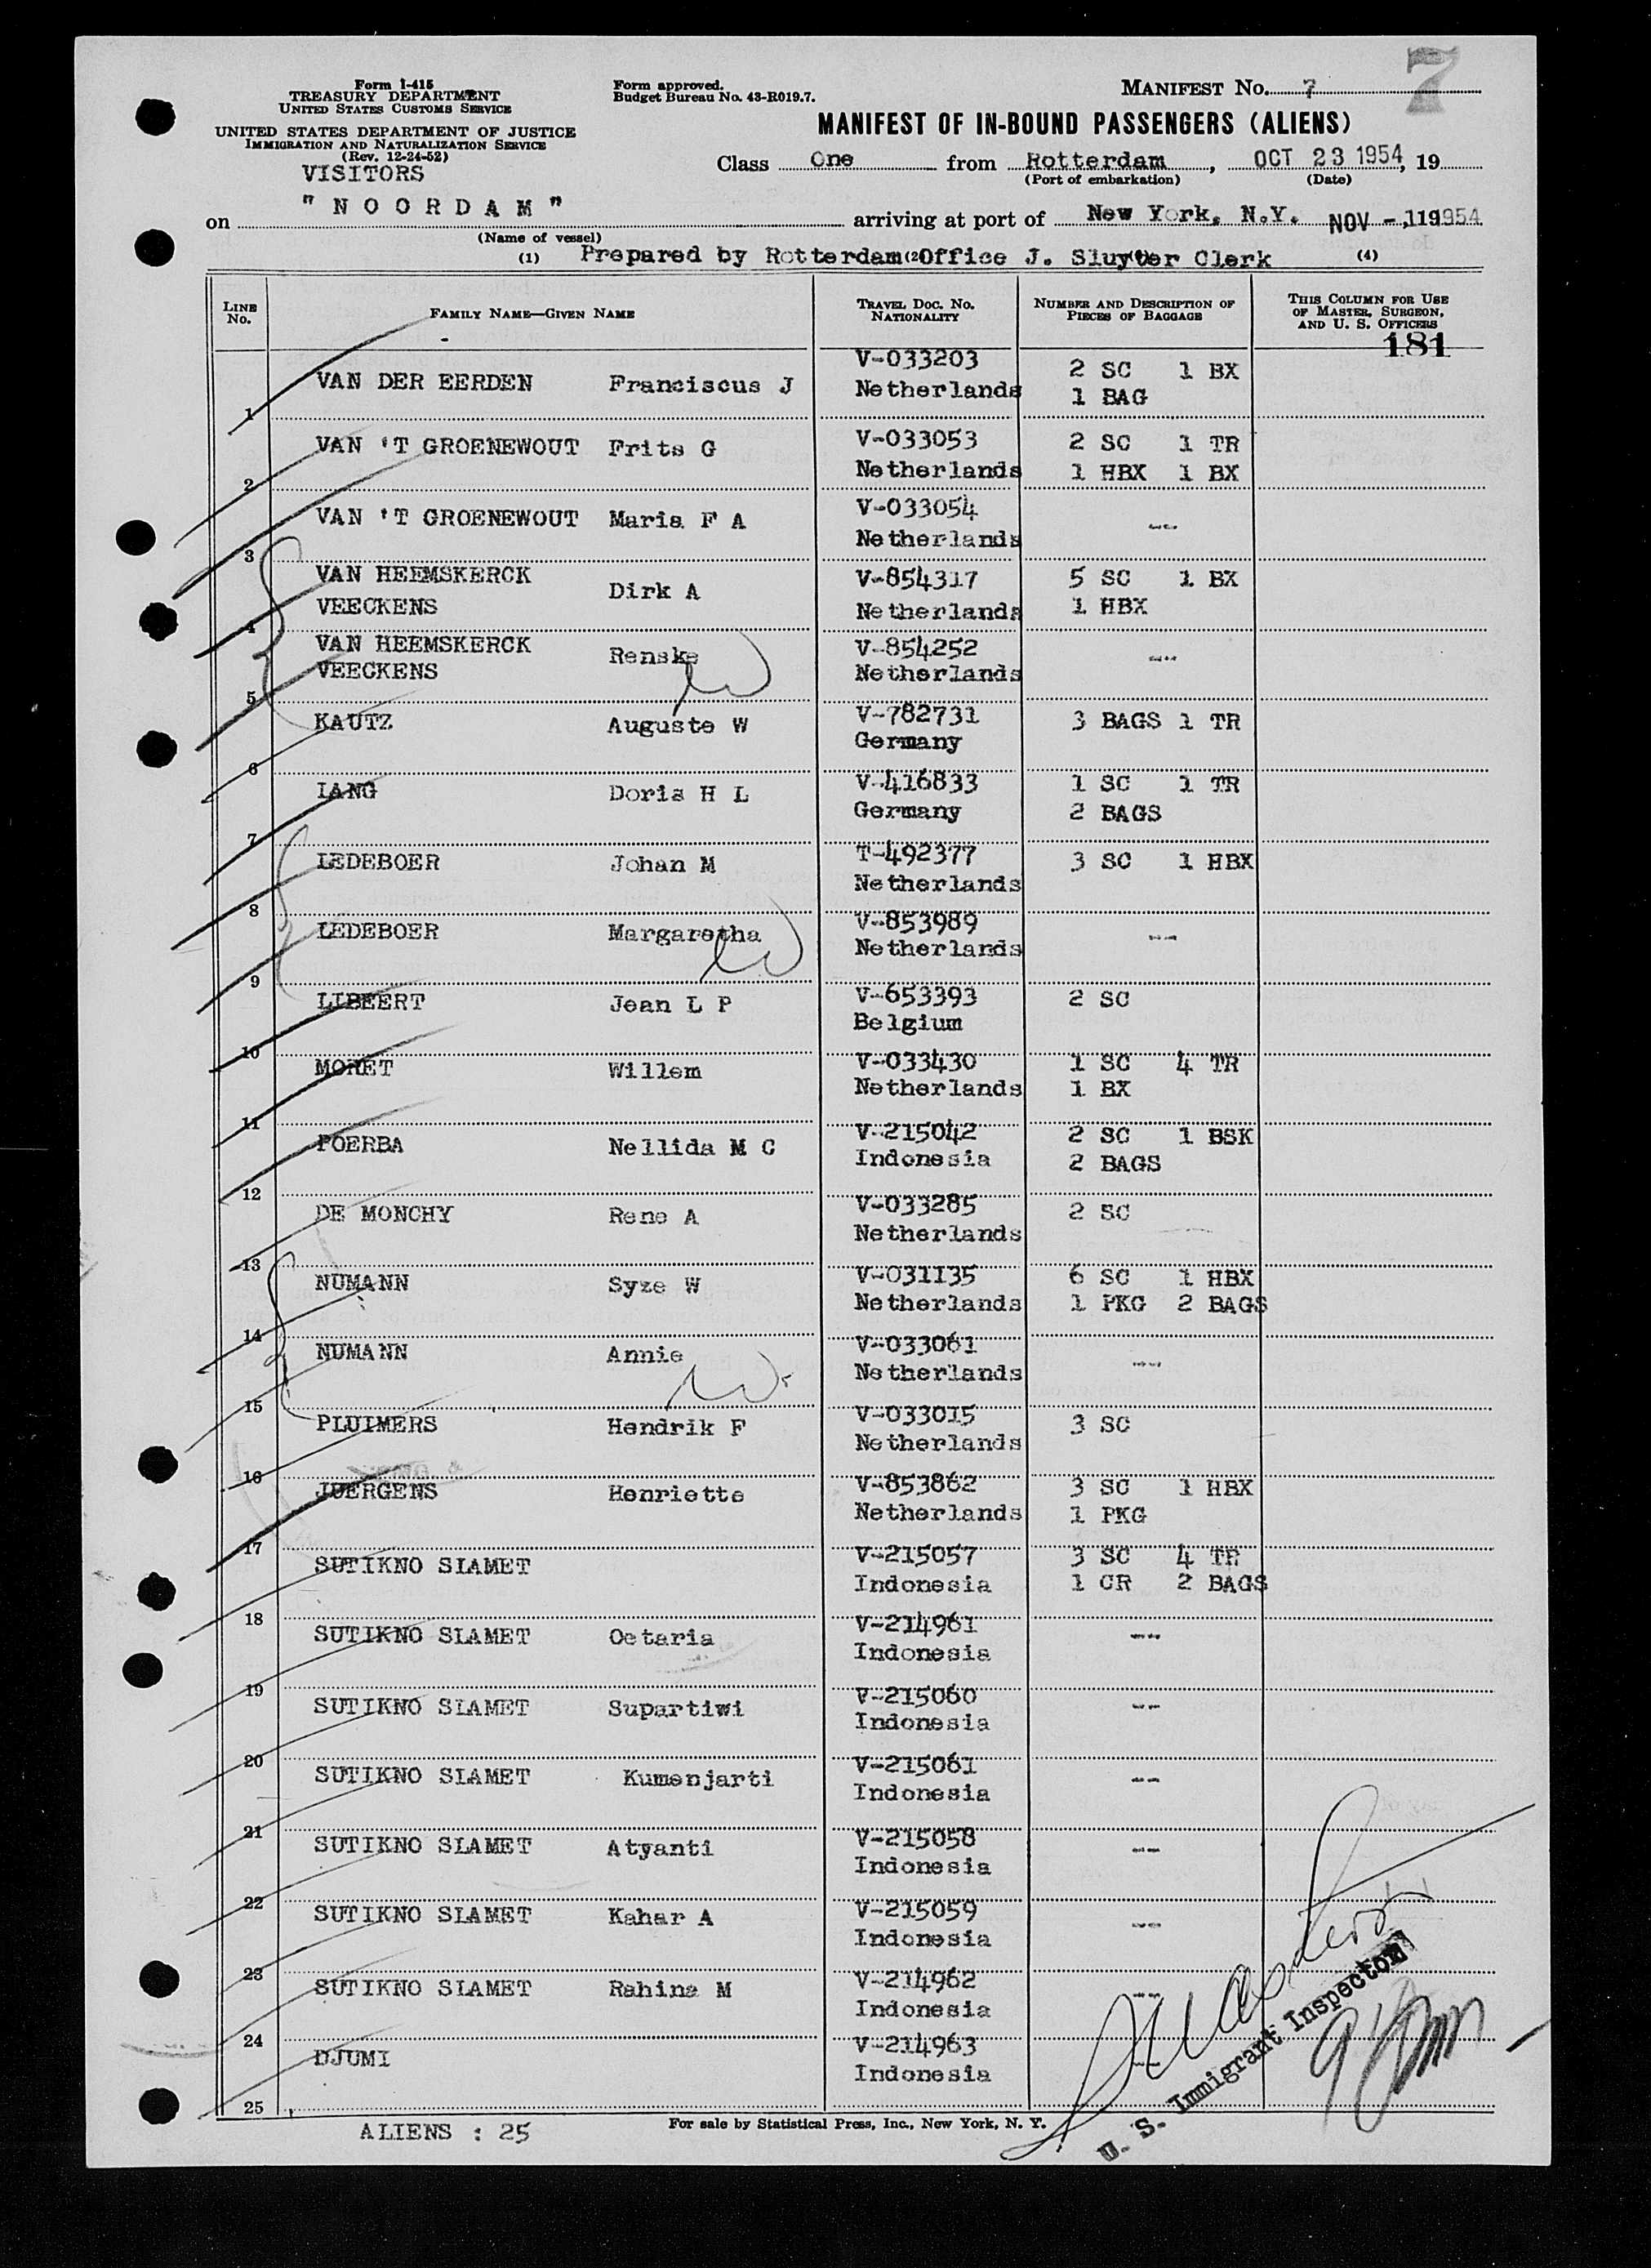 7
Form I-415
TREASURY DEPARTMENT
UNITED STATES CUSTOMS SERVICE
UNITED STATES DEPARTMENT OF JUSTICE
IMMIGRATION AND NATURALIZATION SERVICE
(Rev. 12-24-52)
VISITORS
Form approved.
Budget Bureau No. 43-R019.7.
MANIFEST No. 7
MANIFEST OF IN-BOUND PASSENGERS (ALIENS)
Class One from Rotterdam, OCT 23 1954, 19
(Port of embarkation) (Date)
on "NOORDAM" arriving at port of New York, N.Y. NOV -1 1954
(Name of vessel)
(1) Prepared by Rotterdam Office J. Sluyter Clerk (4)
LINE No. FAMILY NAME—GIVEN NAME TRAVEL DOC. NO. NATIONALITY NUMBER AND DESCRIPTION OF PIECES OF BAGGAGE THIS COLUMN FOR USE OF MASTER, SURGEON, AND U. S. OFFICERS
181
1 VAN DER EERDEN Franciscus J V-033203 Netherlands 2 SC 1 BX 1 BAG
2 VAN 'T GROENEWOUT Frits G V-033053 Netherlands 2 SC 1 TR 1 HBX 1 BX
3 VAN 'T GROENEWOUT Maria F A V-033054 Netherlands ---
4 VAN HEEMSKERCK VEECKENS Dirk A V-854317 Netherlands 5 SC 1 BX 1 HBX
5 VAN HEEMSKERCK VEECKENS Renske V-854252 Netherlands ---
6 KAUTZ Auguste W V-782731 Germany 3 BAGS 1 TR
7 LANG Doris H L V-416833 Germany 1 SC 1 TR 2 BAGS
8 LEDEBOER Johan M T-492377 Netherlands 3 SC 1 HBX
9 LEDEBOER Margaretha V-853989 Netherlands ---
10 LIBEERT Jean L P V-653393 Belgium 2 SC
11 MORET Willem V-033430 Netherlands 1 SC 4 TR 1 BX
12 POERBA Nellida M C V-215042 Indonesia 2 SC 1 BSK 2 BAGS
13 DE MONCHY Rene A V-033285 Netherlands 2 SC
14 NUMANN Syze W V-031135 Netherlands 6 SC 1 HBX 1 PKG 2 BAGS
15 NUMANN Annie V-033061 Netherlands ---
16 PLUIMERS Hendrik F V-033015 Netherlands 3 SC
17 JUERGENS Henriette V-853862 Netherlands 3 SC 1 HBX 1 PKG
18 SUTIKNO SLAMET V-215057 Indonesia 3 SC 4 TR 1 CR 2 BAGS
19 SUTIKNO SLAMET Oetaria V-214961 Indonesia ---
20 SUTIKNO SLAMET Supartiwi V-215060 Indonesia ---
21 SUTIKNO SLAMET Kumenjarti V-215061 Indonesia ---
22 SUTIKNO SLAMET Atyanti V-215058 Indonesia ---
23 SUTIKNO SLAMET Kahar A V-215059 Indonesia ---
24 SUTIKNO SLAMET Rahina M V-214962 Indonesia ---
25 DJUMI V-214963 Indonesia
U. S. Immigrant Inspector
ALIENS : 25
For sale by Statistical Press, Inc., New York, N. Y.